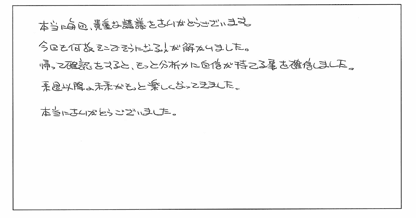 本当に毎回、貴重な講義をありがとうございます。
今回も何故そこでそうになるかが解かりました。
帰って確認をすると、もっと分析力に自信が持てる事を確信しました。
来週以降の未来がもっと楽しくなってきました。
本当にありがとうございました。